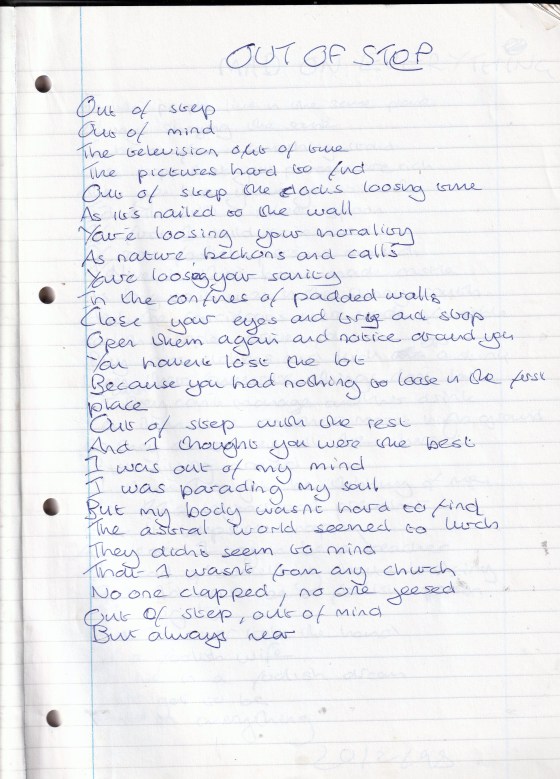 OUT OF STOP
Out of step
Out of mind
The television out of tune
The pictures hard to find
Out of step the clocks loosing time
As it's nailed to the wall
Your'e loosing your morality
As nature, beckons and calls
Your'e loosing your sanity
In the confines of padded walls
Close your eyes and and stop
Open them again and notice around you
You havent lost the lot
Because you had nothing to loose in the first
place
Out of step with the rest
And I thought you were the best
I was out of my mind
I was parading my soul
But my body wasnt hard to find
The astral world seemed to lurch
They didn't seem to mind
That I wasn't from any church
No one clapped, no one jeesed
Out Of step, out of mind
But always near